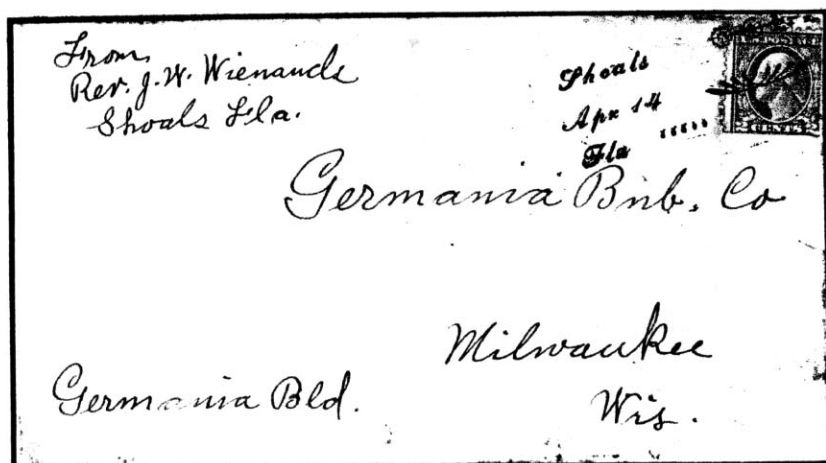 From
Rev. J. W. Wienands
Shoals Fla.
Shoals
Apr 14
Fla
CENTS
Germania Bnb. Co
Milwaukee
Wis.
Germania Bld.